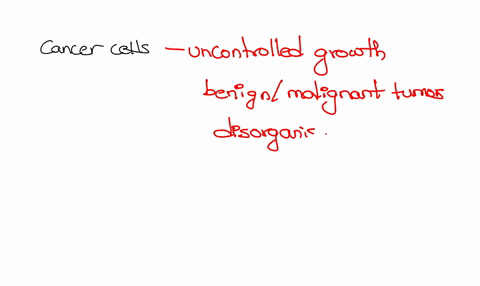 Cancer cells – uncontrolled growth
benign/malignant tumors
disorganis